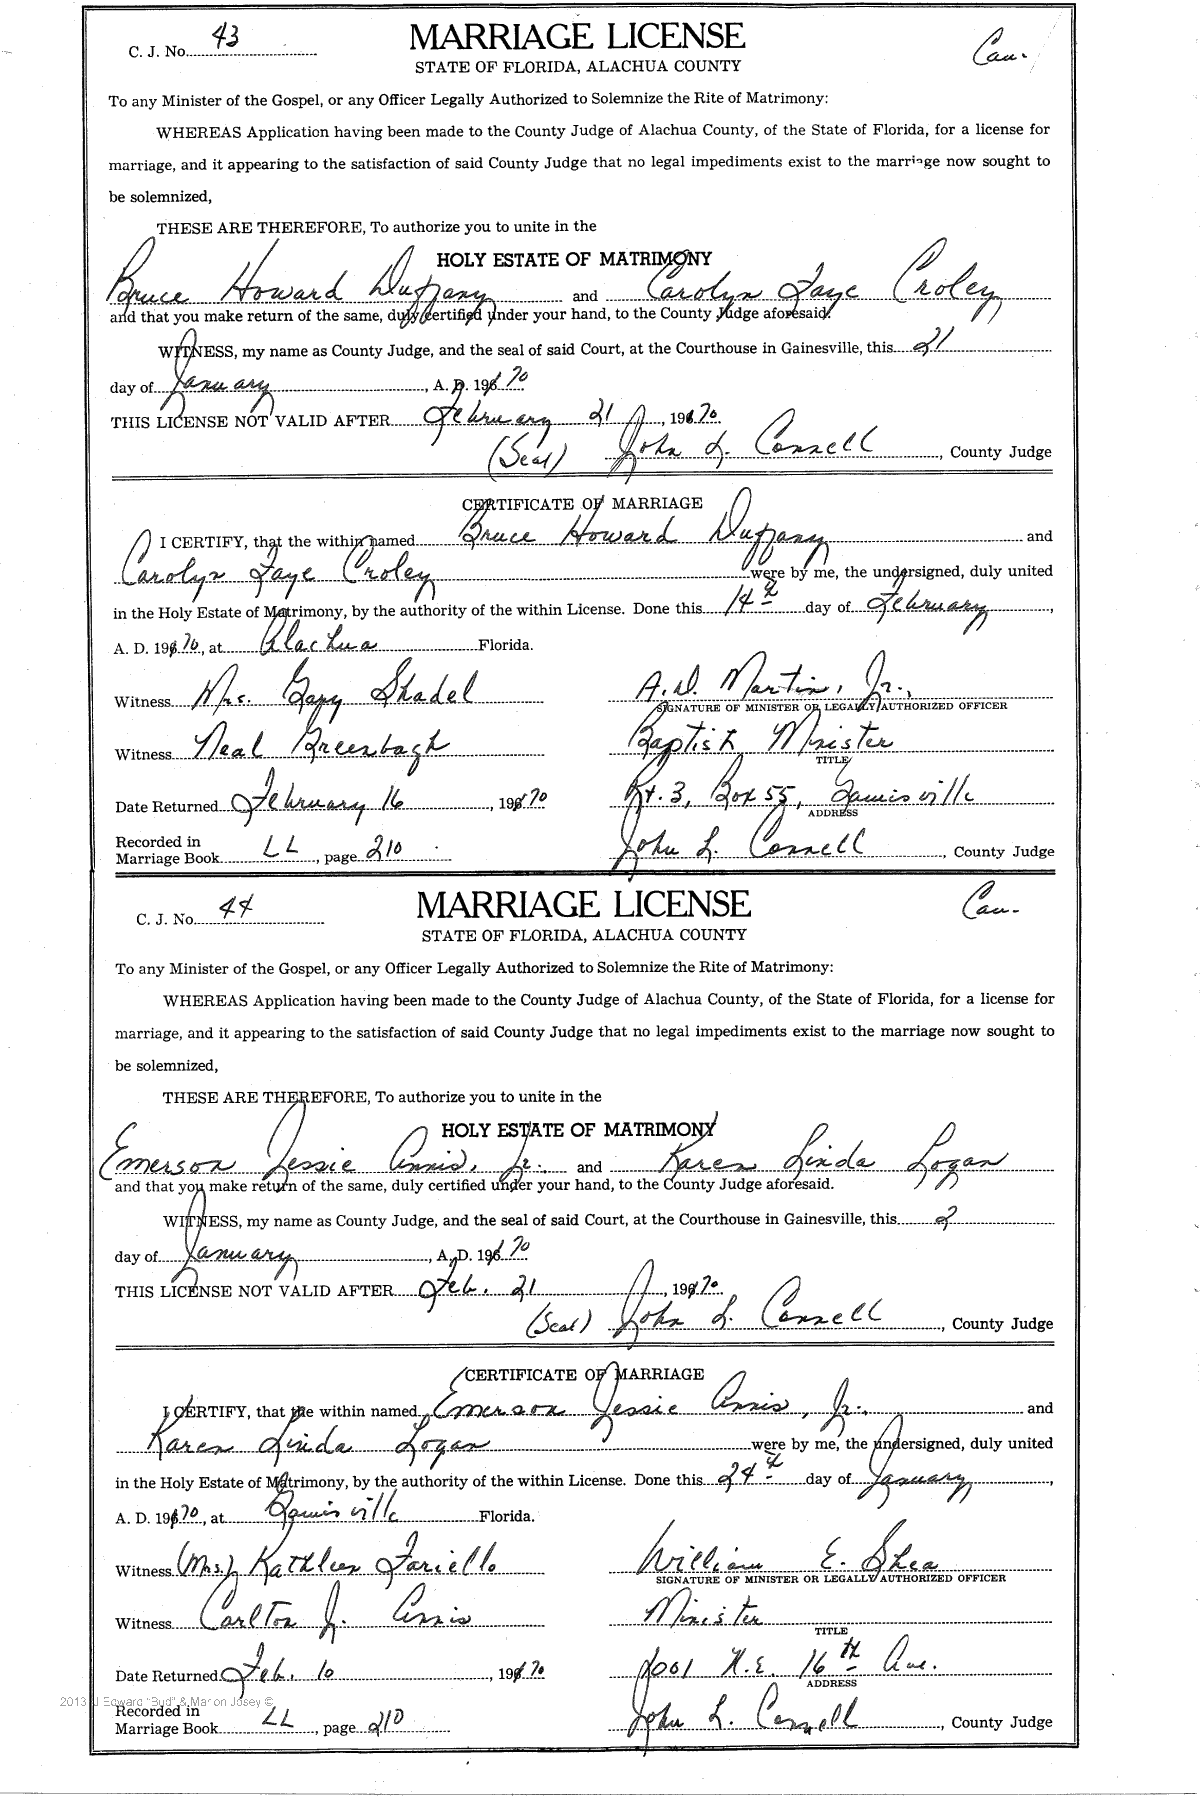 C. J. No. 43 MARRIAGE LICENSE Cau.
STATE OF FLORIDA, ALACHUA COUNTY
To any Minister of the Gospel, or any Officer Legally Authorized to Solemnize the Rite of Matrimony:
WHEREAS Application having been made to the County Judge of Alachua County, of the State of Florida, for a license for
marriage, and it appearing to the satisfaction of said County Judge that no legal impediments exist to the marriage now sought to
be solemnized,
THESE ARE THEREFORE, To authorize you to unite in the
HOLY ESTATE OF MATRIMONY
Bruce Howard Duffany and Carolyn Faye Croley
and that you make return of the same, duly certified under your hand, to the County Judge aforesaid.
WITNESS, my name as County Judge, and the seal of said Court, at the Courthouse in Gainesville, this 21
day of January, A. D. 1970
THIS LICENSE NOT VALID AFTER February 21, 1970
(Seal) John L. Connell, County Judge
CERTIFICATE OF MARRIAGE
I CERTIFY, that the within named Bruce Howard Duffany and
Carolyn Faye Croley were by me, the undersigned, duly united
in the Holy Estate of Matrimony, by the authority of the within License. Done this 14th day of February,
A. D. 1970, at Alachua Florida.
Witness Mrs. Gary Shadel A. D. Martin, Jr.,
SIGNATURE OF MINISTER OR LEGALLY AUTHORIZED OFFICER
Witness Neal Greenbagh Baptist Minister
TITLE
Date Returned February 16, 1970 Rt. 3, Box 55, Gainesville
ADDRESS
Recorded in
Marriage Book LL, page 210 John L. Connell, County Judge
C. J. No. 44 MARRIAGE LICENSE Cau.
STATE OF FLORIDA, ALACHUA COUNTY
To any Minister of the Gospel, or any Officer Legally Authorized to Solemnize the Rite of Matrimony:
WHEREAS Application having been made to the County Judge of Alachua County, of the State of Florida, for a license for
marriage, and it appearing to the satisfaction of said County Judge that no legal impediments exist to the marriage now sought to
be solemnized,
THESE ARE THEREFORE, To authorize you to unite in the
HOLY ESTATE OF MATRIMONY
Emerson Jessie Annis, Jr. and Karen Linda Logan
and that you make return of the same, duly certified under your hand, to the County Judge aforesaid.
WITNESS, my name as County Judge, and the seal of said Court, at the Courthouse in Gainesville, this 2
day of January, A. D. 1970
THIS LICENSE NOT VALID AFTER Feb. 21, 1970
(Seal) John L. Connell, County Judge
CERTIFICATE OF MARRIAGE
I CERTIFY, that the within named Emerson Jessie Annis, Jr., and
Karen Linda Logan were by me, the undersigned, duly united
in the Holy Estate of Matrimony, by the authority of the within License. Done this 24th day of January,
A. D. 1970, at Gainesville Florida.
Witness (Mrs.) Kathleen Fariello William E. Shea
SIGNATURE OF MINISTER OR LEGALLY AUTHORIZED OFFICER
Witness Carlton J. Annis Minister
TITLE
Date Returned Feb. 10, 1970 2001 N.E. 16th Ave.
ADDRESS
2013 J Edward "Bud" & Marion Josey ©
Recorded in
Marriage Book LL, page 210 John L. Connell, County Judge